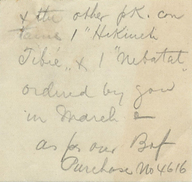 & the other pk. con
tains 1 "Hikinch
Tibie" & 1 "Nebatat"
ordered by you
in March
as for our Bof
Purchase No 4616